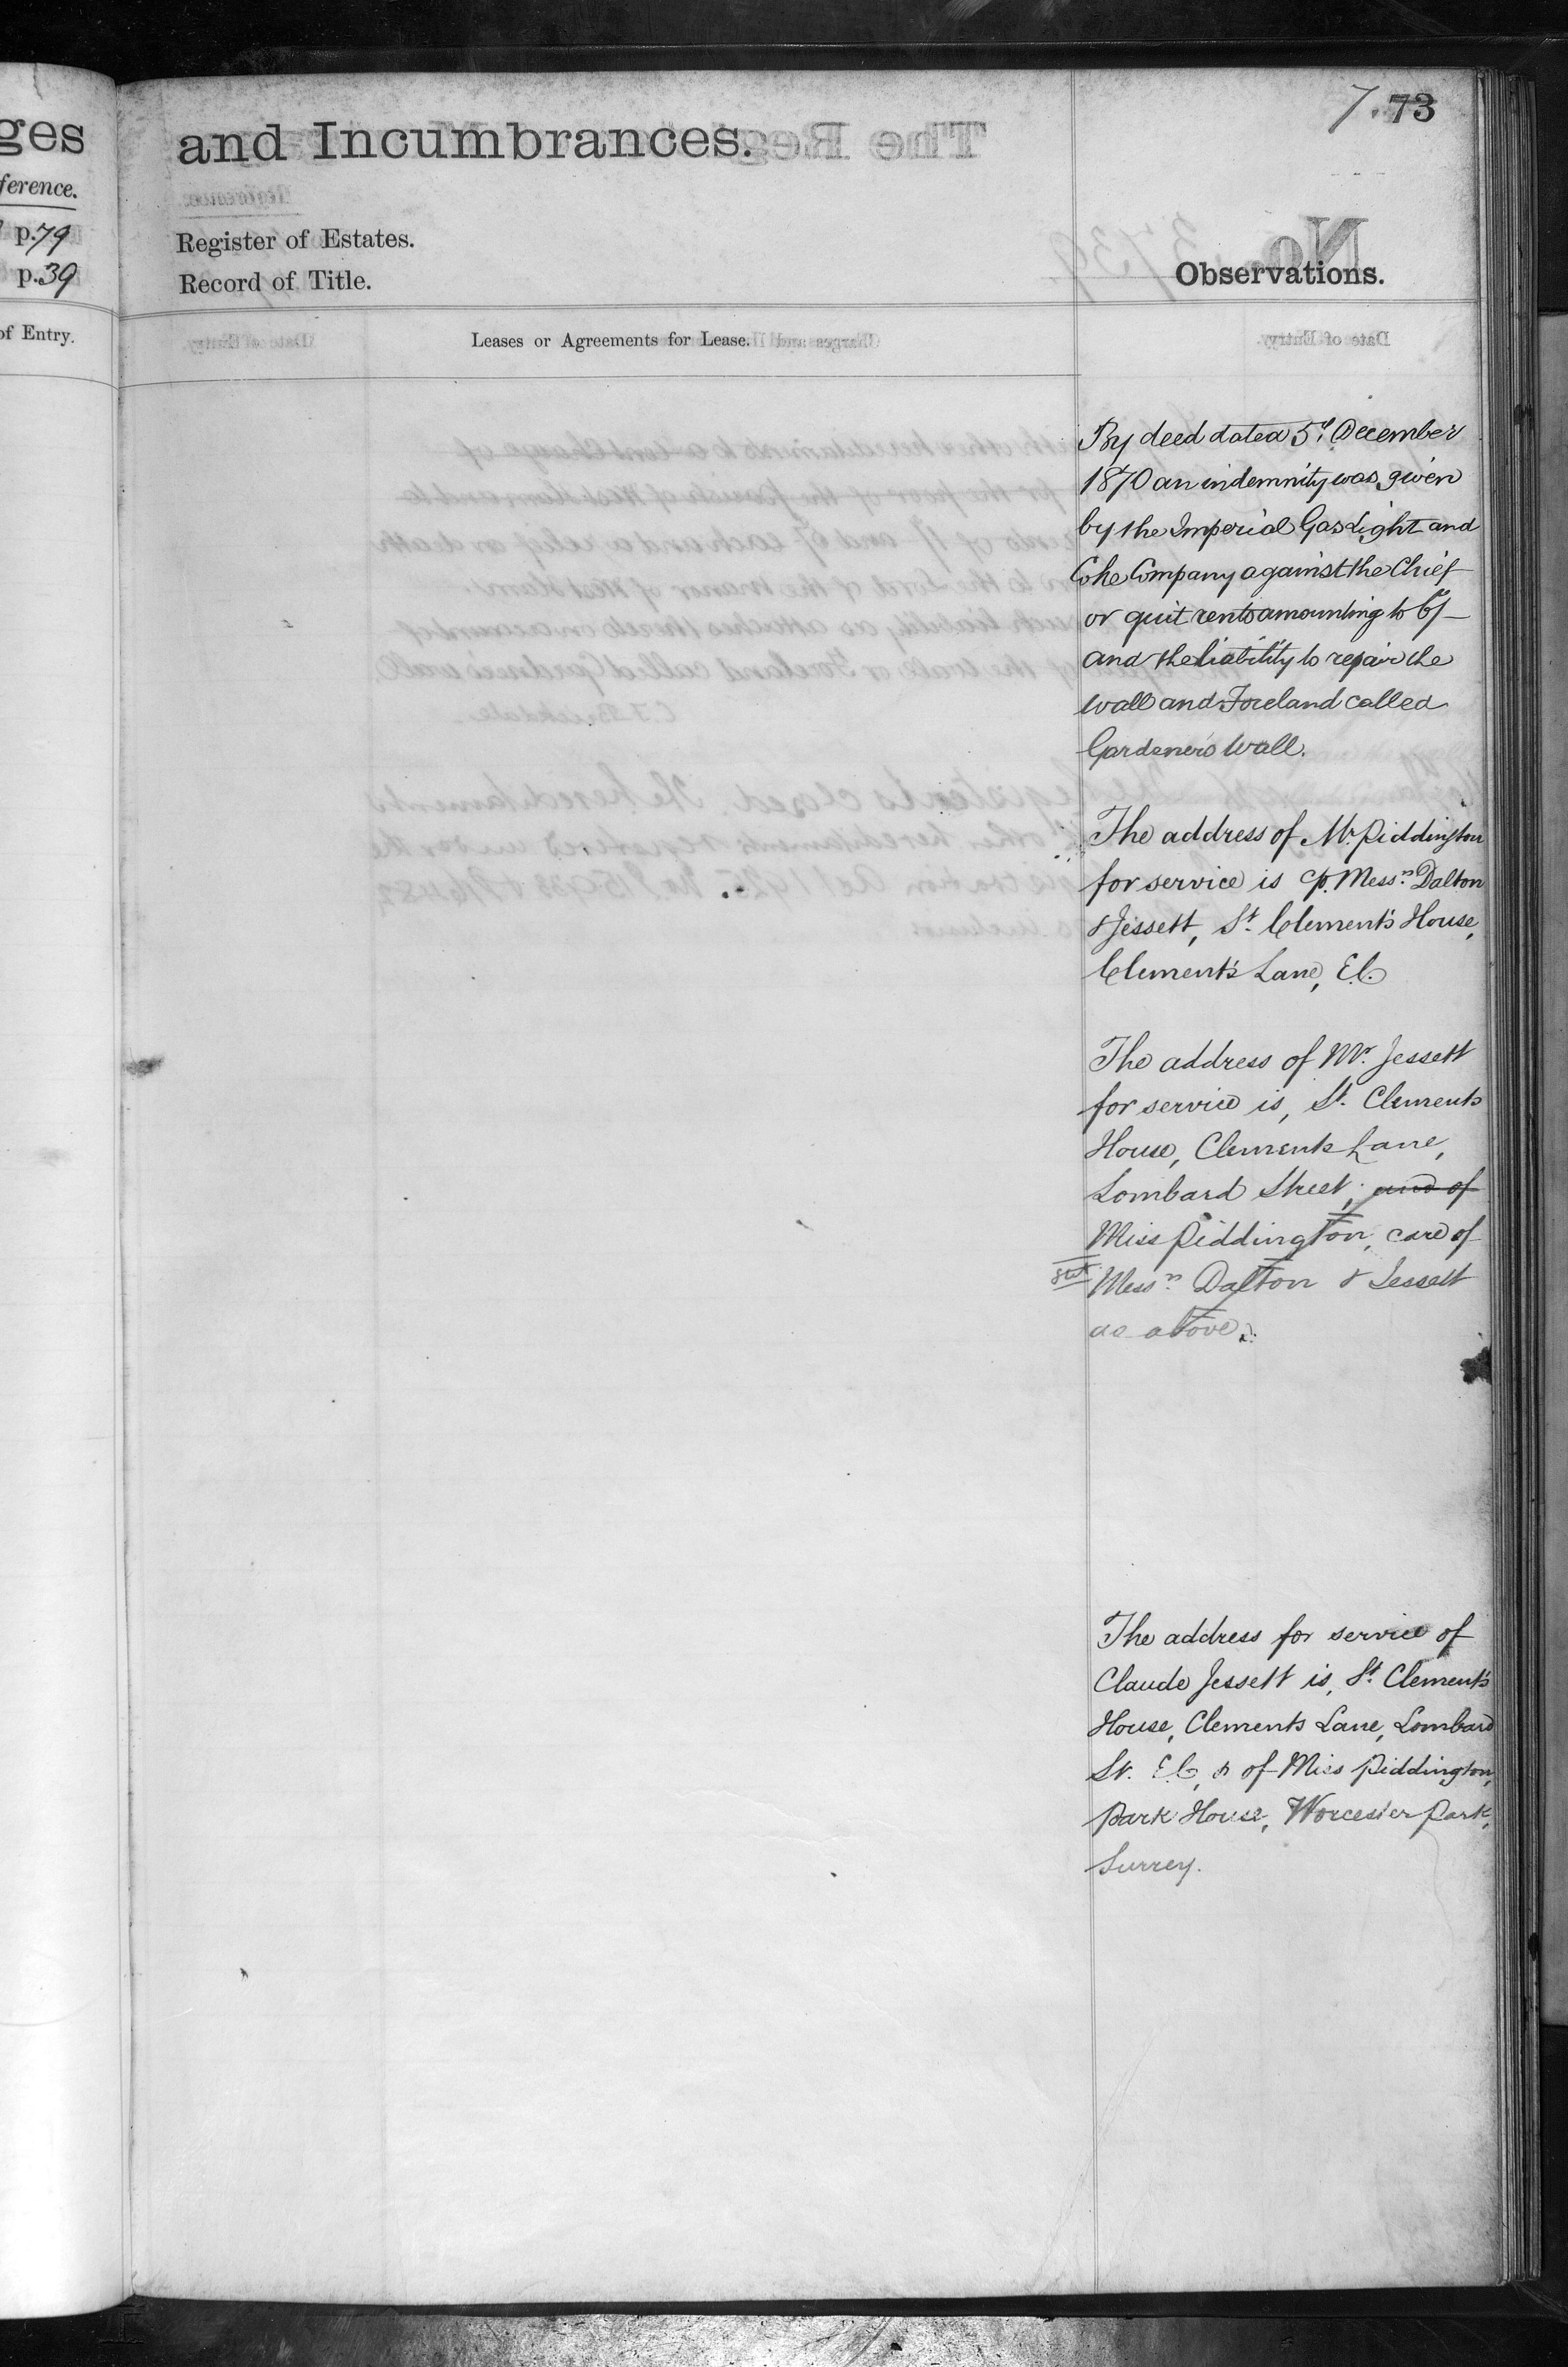 ges
ference.
p. 79
p. 39
of Entry.
7. 73
and Incumbrances.
Register of Estates.
Record of Title.
Observations.
Leases or Agreements for Lease.
By deed dated 5th December
1870 an indemnity was given
by the Imperial Gas Light and
Coke Company against the Chief
or quit rents amounting to 6/-
and the liability to repair the
wall and Foreland called
Gardener's Wall.
The address of Mr. Piddington
for service is c/o. Messrs. Dalton
& Jessett, St. Clement's House,
Clement's Lane, E.C.
The address of Mr. Jessett
for service is, St. Clements
House, Clements Lane,
Lombard Street; and of
Miss Piddington, care of
Messrs. Dalton & Jessett
as above.
The address for service of
Claude Jessett is, St. Clement's
House, Clements Lane, Lombard
St. E.C, & of Miss Piddington,
Park House, Worcester Park,
Surrey.